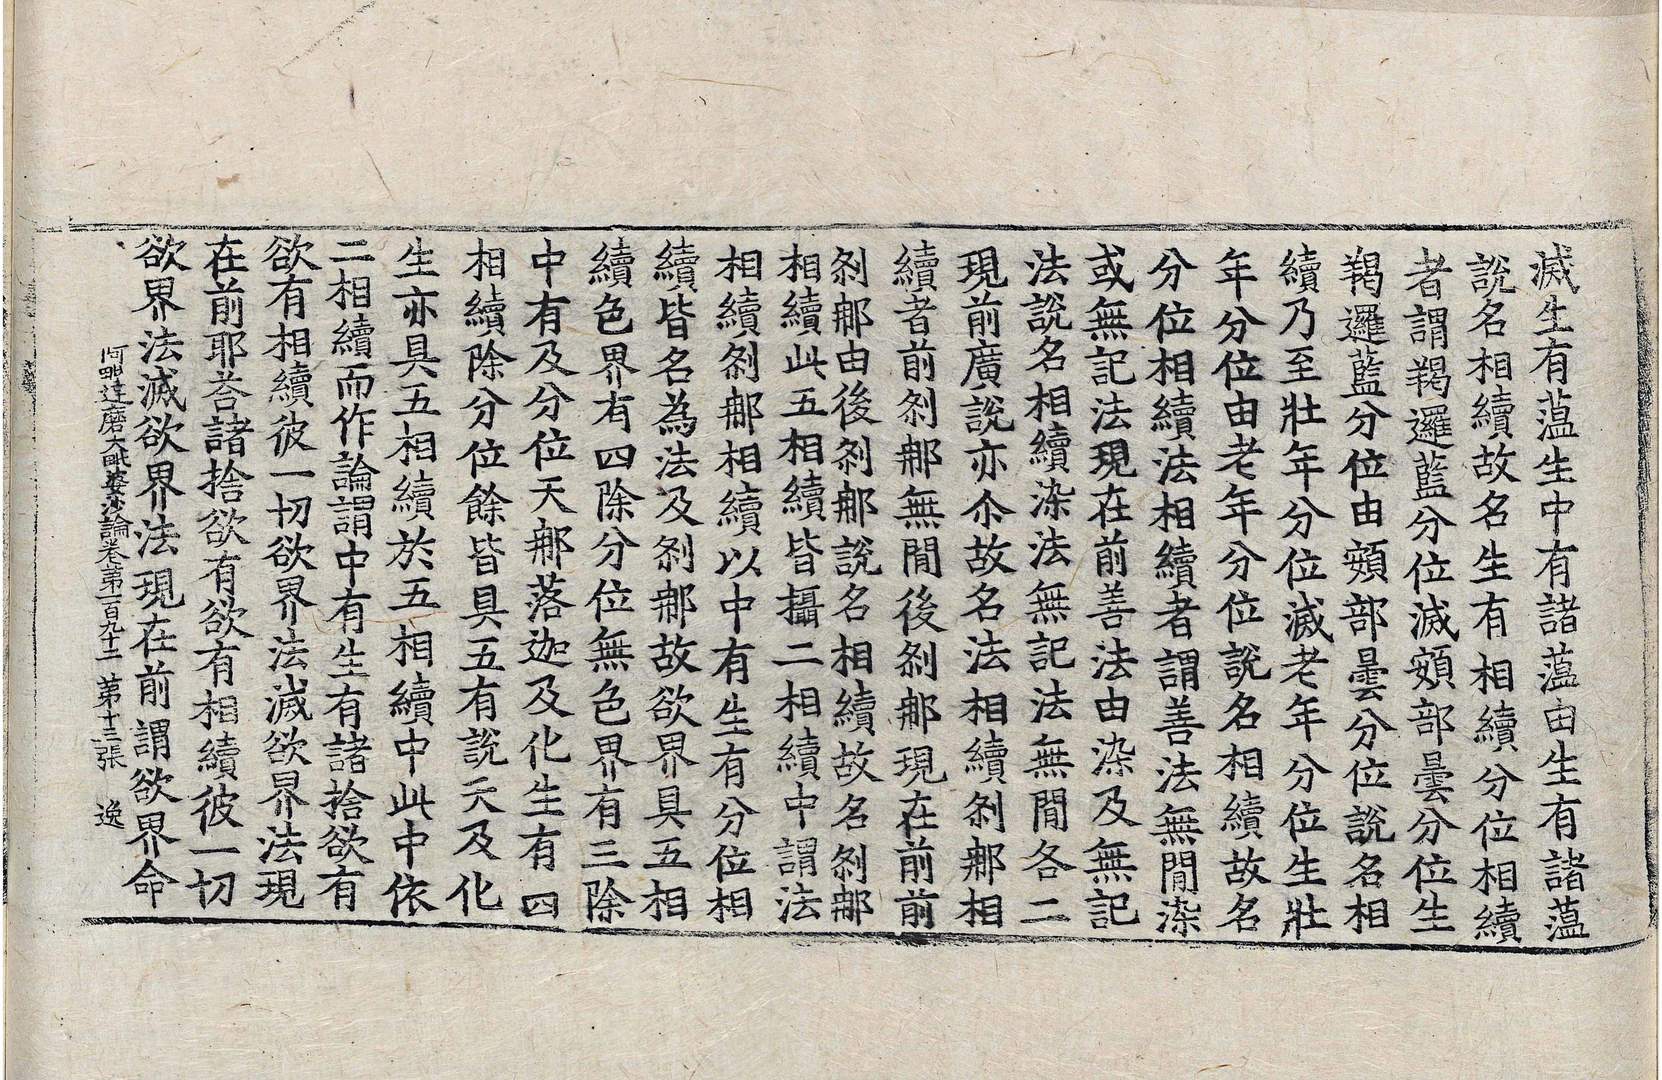 滅生有蕰生中有諸蕰由生有諸蕰
說名相續故名生有相續分位相續
者謂羯邏藍分位滅頞部曇分位生
羯邏藍分位由頞部曇分位說名相
續乃至壯年分位滅老年分位生壯
年分位由老年分位說名相續故名
分位相續法相續者謂善法無閒染
或無記法現在前善法由染及無記
法說名相續染法無記法無閒各二
現前廣說亦尒故名法相續剎那相
續者前剎那無閒後剎那現在前前
剎那由後剎那說名相續故名剎那
相續此五相續皆攝二相續中謂法
相續剎那相續以中有生有分位相
續皆名為法及剎那故欲界具五相
續色界有四除分位無色界有三除
中有及分位天那落迦及化生有四
相續除分位餘皆具五有說天及化
生亦具五相續於五相續中此中依
二相續而作論謂中有生有諸捨欲有
欲有相續彼一切欲界法滅欲界法現
在前耶荅諸捨欲有欲有相續彼一切
欲界法滅欲界法現在前謂欲界命
阿毗達磨大毗婆沙論卷第一百九十二 第十三張 逸